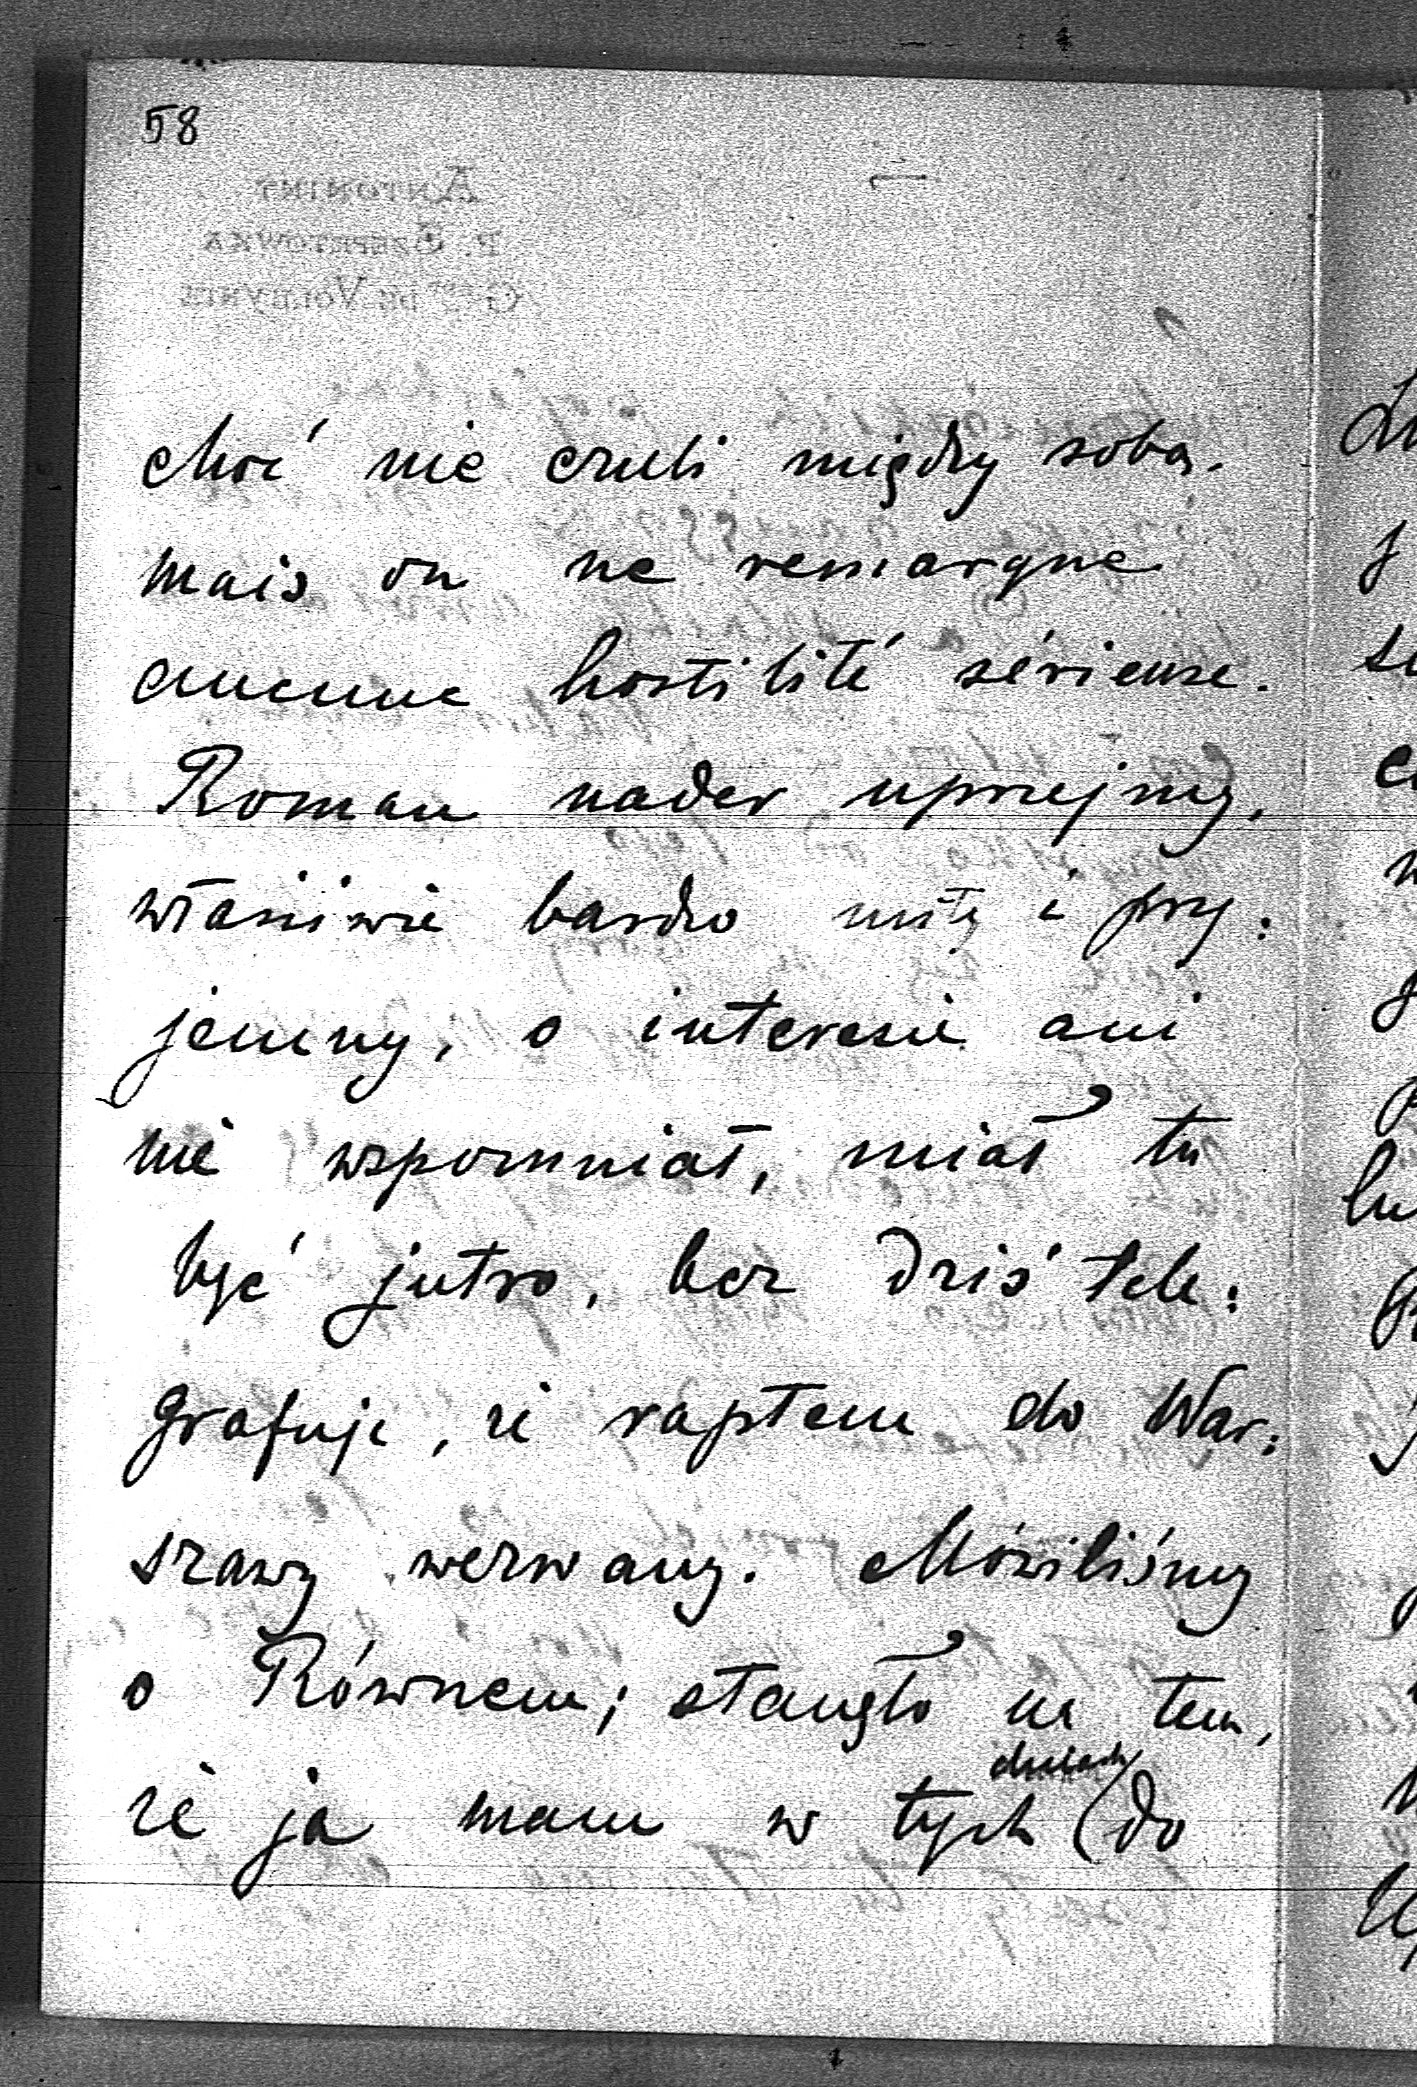 58
choć nie czuli między sobą.
mais on ne remarque
aucune hostilité sérieuse.
Roman nader uprzejmy,
właściwie bardzo miły i przy:
jemny, o interesie ani
nie wspomniał, miał tu
być jutro, lecz dziś tele:
grafuje, że raptem do War:
szawy wezwany. Mówiliśmy
o Równem; stanęło na tem,
że ja mam w tych dniach do